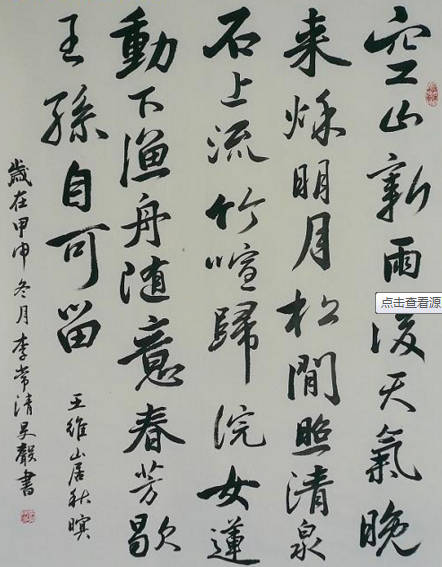 空山新雨後天氣晚
来秋明月松間照清泉
石上流竹喧歸浣女蓮
動下漁舟随意春芳歇
王孫自可留
王維山居秋暝
歲在甲申冬月李常清書
点击查看源